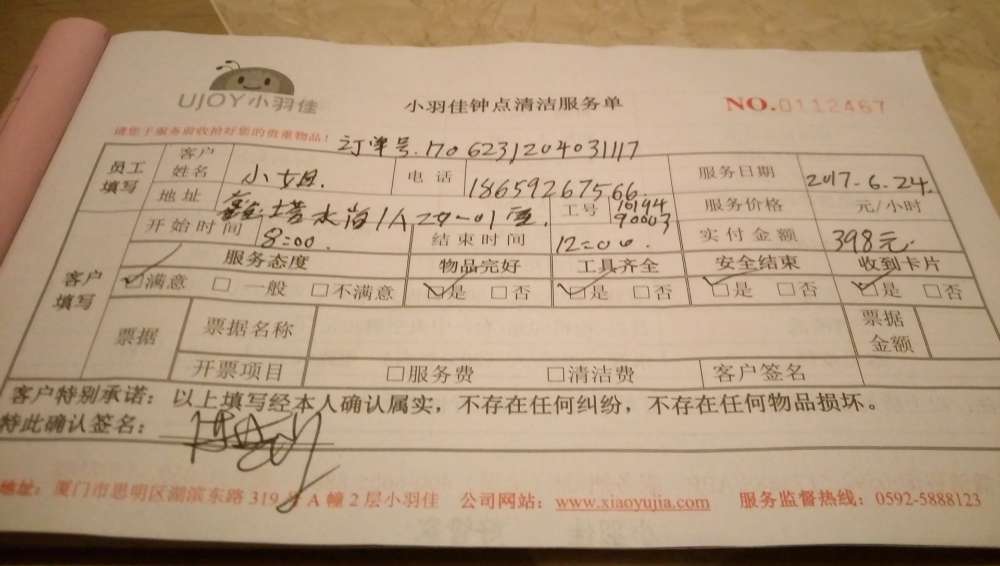 UJOY小羽佳
小羽佳钟点清洁服务单
NO.0112467
请您于服务前收拾好您的贵重物品!
订单号.170623120403 1117
员工填写 客户姓名 小姐. 电话 18659267566. 服务日期 2017.6.24.
地址 水岸1A 20-01室. 工号 90003 服务价格 元/小时
开始时间 8:00. 结束时间 12:00. 实付金额 398元.
客户填写 服务态度 物品完好 工具齐全 安全结束 收到卡片
☑满意 □一般 □不满意 ☑是 □否 ☑是 □否 ☑是 □否 ☑是 □否
票据 票据名称 票据金额
开票项目 □服务费 □清洁费 客户签名
客户特别承诺:以上填写经本人确认属实,不存在任何纠纷,不存在任何物品损坏。
特此确认签名:
地址:厦门市思明区湖滨东路 319 号 A 幢 2 层小羽佳 公司网站:www.xiaoyujia.com 服务监督热线:0592-5888123